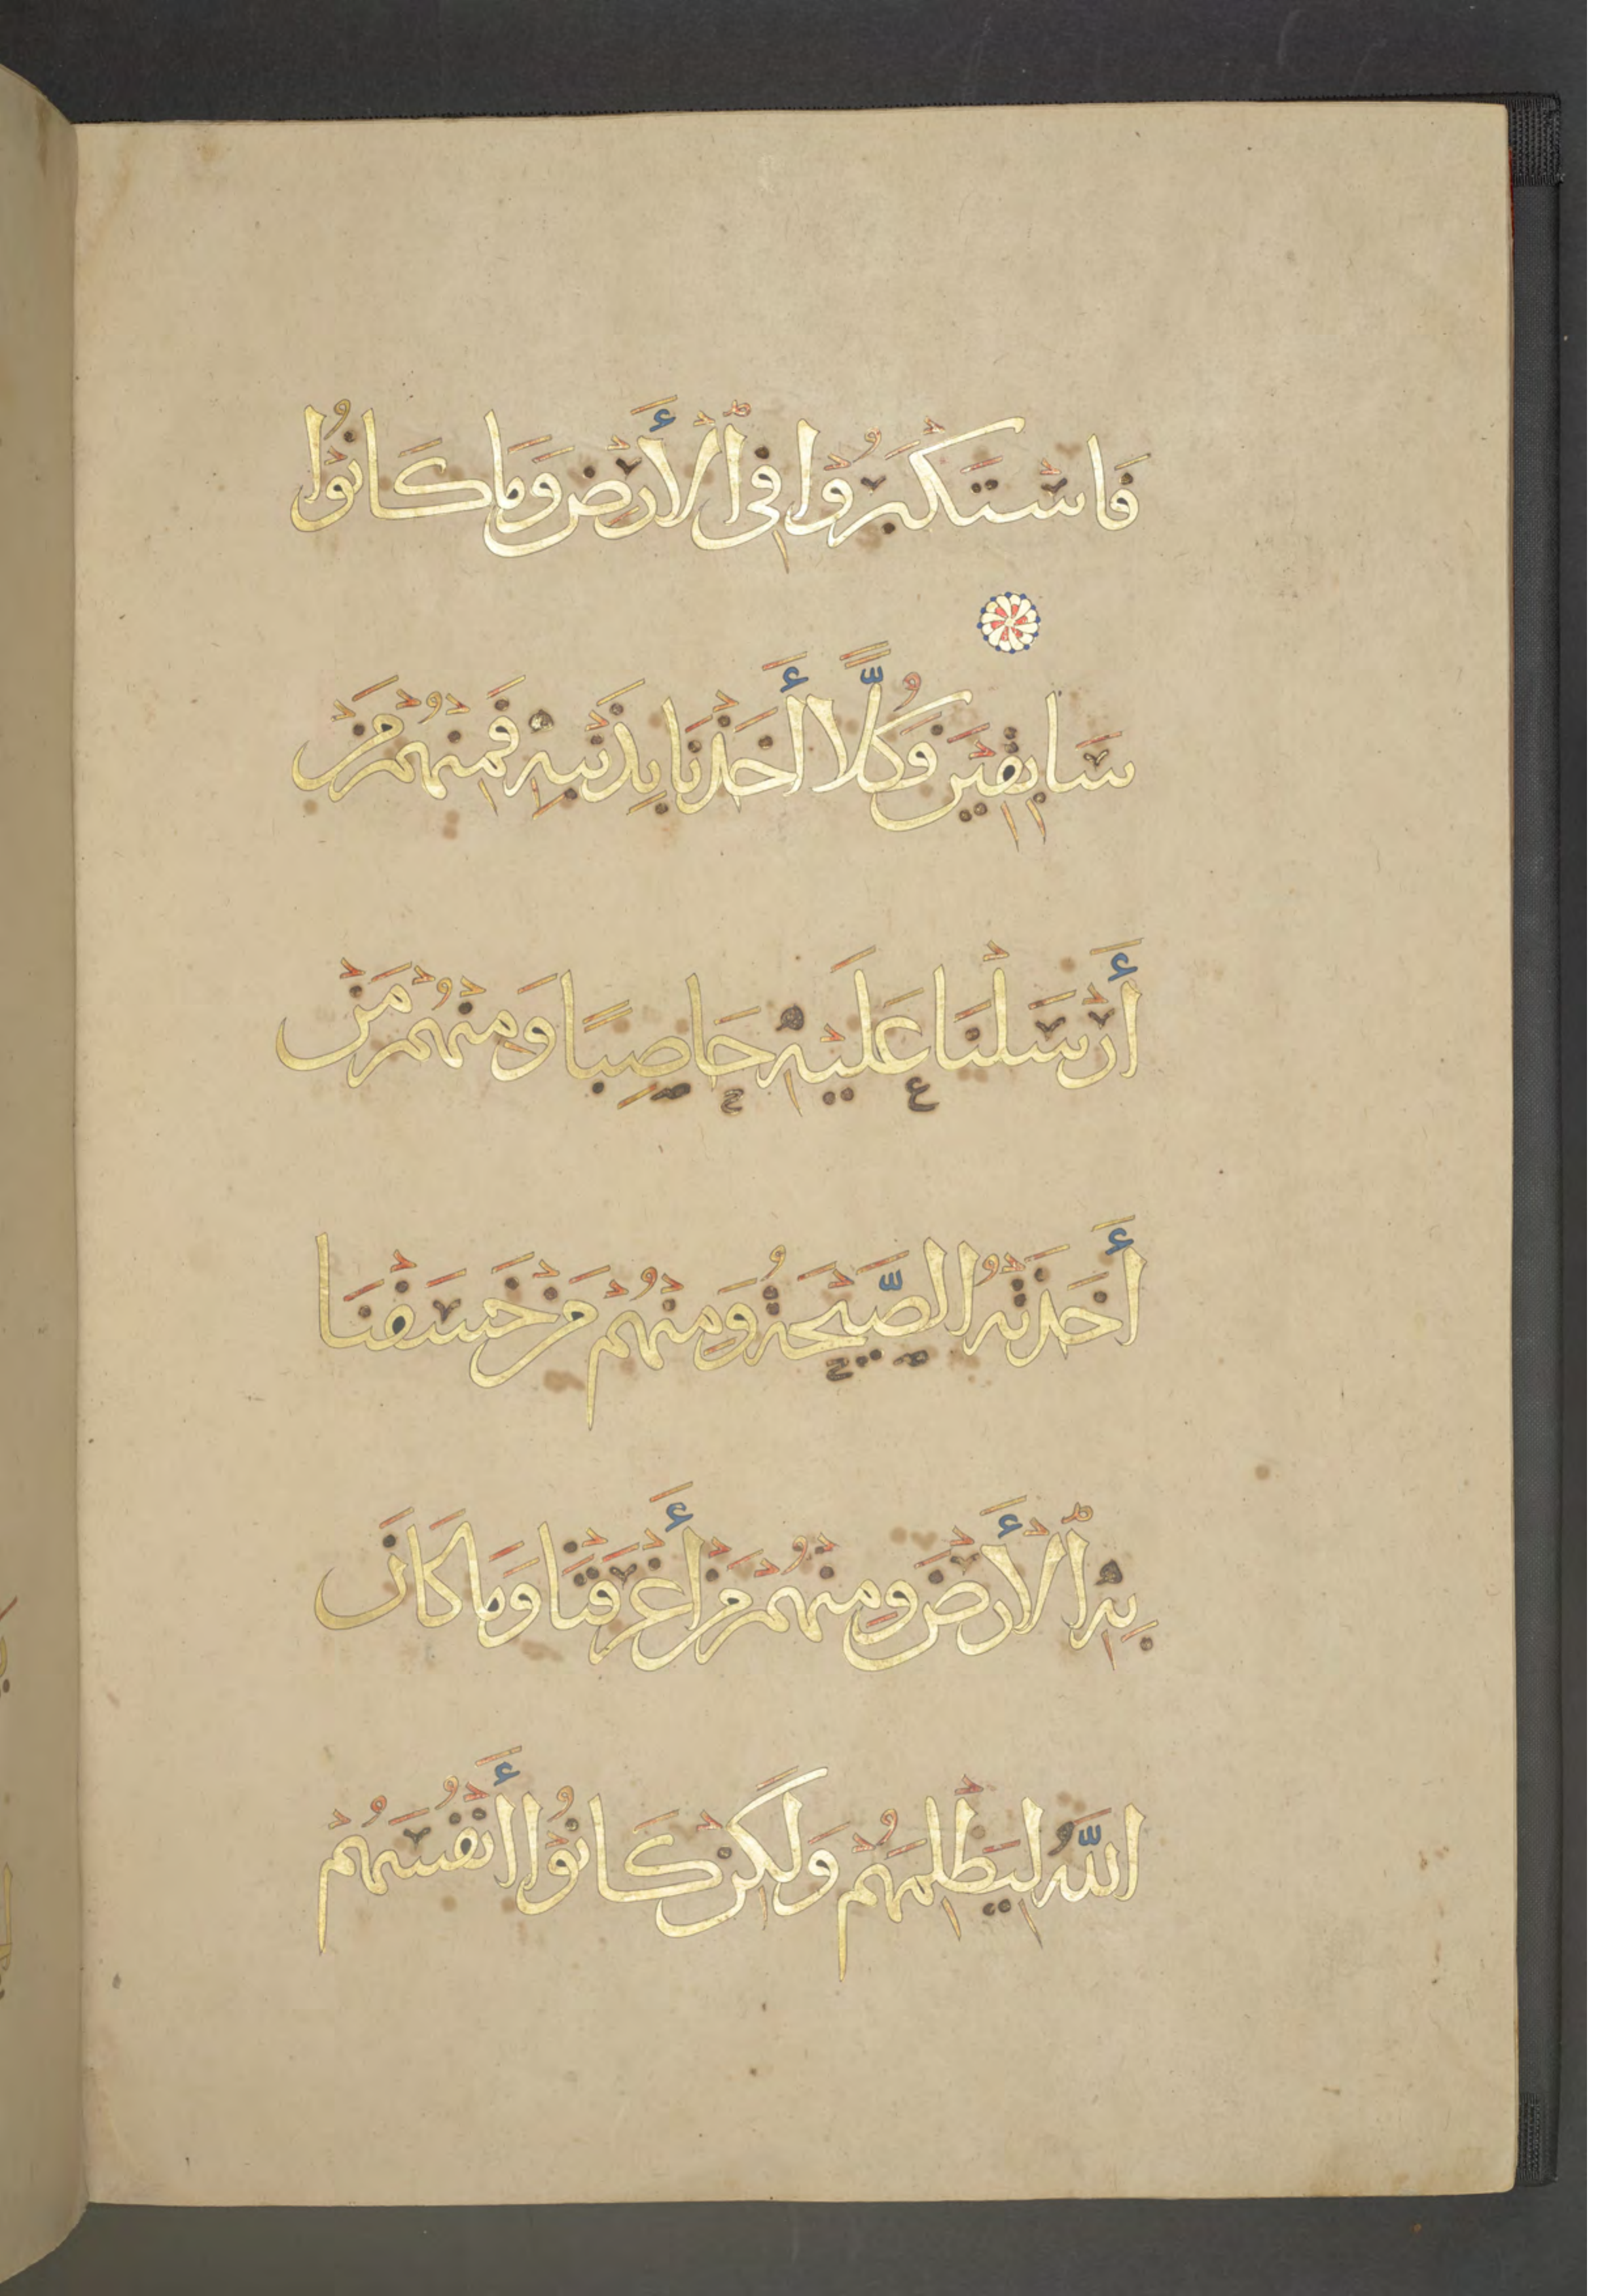 فَاسْتَكْبَرُوْا فِي ٱلْأَرْضِ وَمَا كَانُوْا
سَابِقِيْنَ فَكُلًّا أَخَذْنَا بِذَنْبِهِ فَمِنْهُمْ مَنْ
أَرْسَلْنَا عَلَيْهِ حَاصِبًا وَمِنْهُمْ مَنْ
أَخَذَتْهُ الصَّيْحَةُ وَمِنْهُمْ مَنْ خَسَفْنَا
بِهِ ٱلْأَرْضَ وَمِنْهُمْ مَنْ أَغْرَقْنَا وَمَا كَانَ
اللَّهُ لِيَظْلِمَهُمْ وَلَكِنْ كَانُوْا أَنْفُسَهُمْ